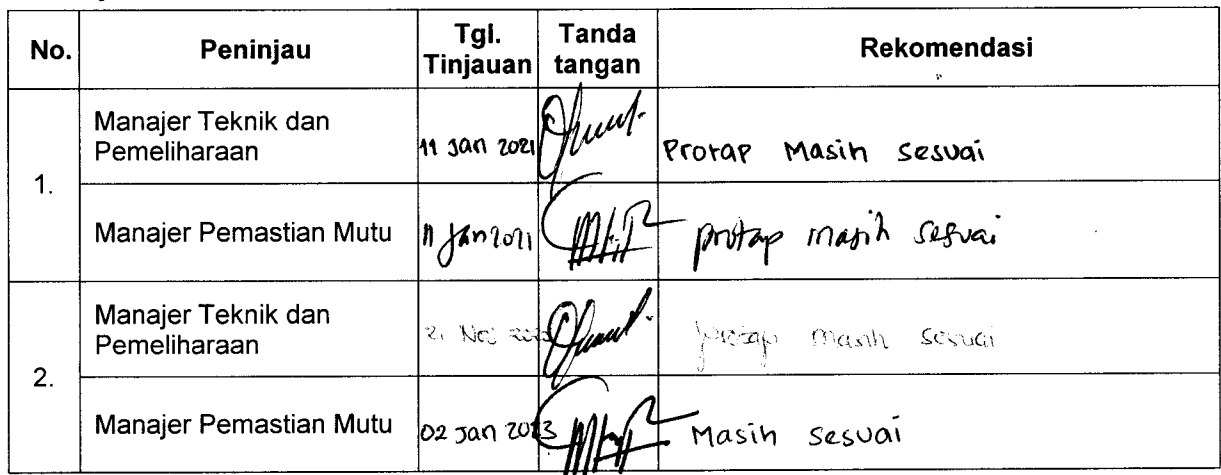 No. Peninjau Tgl. Tinjauan Tanda tangan Rekomendasi
1.
Manajer Teknik dan Pemeliharaan 11 Jan 2021 Protap Masih sesuai
Manajer Pemastian Mutu 11 Jan 2021 protap masih sesuai
2.
Manajer Teknik dan Pemeliharaan 21 masih sesuai
Manajer Pemastian Mutu 02 Jan 2023 Masih sesuai